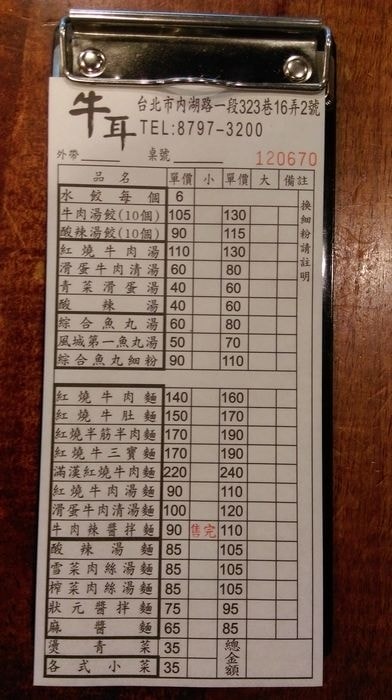 牛耳
台北市內湖路一段323巷16弄2號
TEL:8797-3200
外帶 桌號 120670
品名 單價 小 單價 大 備註
水餃每個 6
牛肉湯餃(10個) 105 130
酸辣湯餃(10個) 90 115
紅燒牛肉湯 110 130
滑蛋牛肉清湯 60 80
青菜滑蛋湯 40 60
酸辣湯 40 60
綜合魚丸湯 60 80
風城第一魚丸湯 50 70
綜合魚丸細粉 90 110
換細粉請註明
紅燒牛肉麵 140 160
紅燒牛肚麵 150 170
紅燒半筋半肉麵 170 190
紅燒牛三寶麵 170 190
滿漢紅燒牛肉麵 220 240
紅燒牛肉湯麵 90 110
滑蛋牛肉清湯麵 100 120
牛肉辣醬拌麵 90 售完 110
酸辣湯麵 85 105
雪菜肉絲湯麵 85 105
榨菜肉絲湯麵 85 105
狀元醬拌麵 75 95
麻醬麵 65 85
燙青菜 35 總金額
各式小菜 35